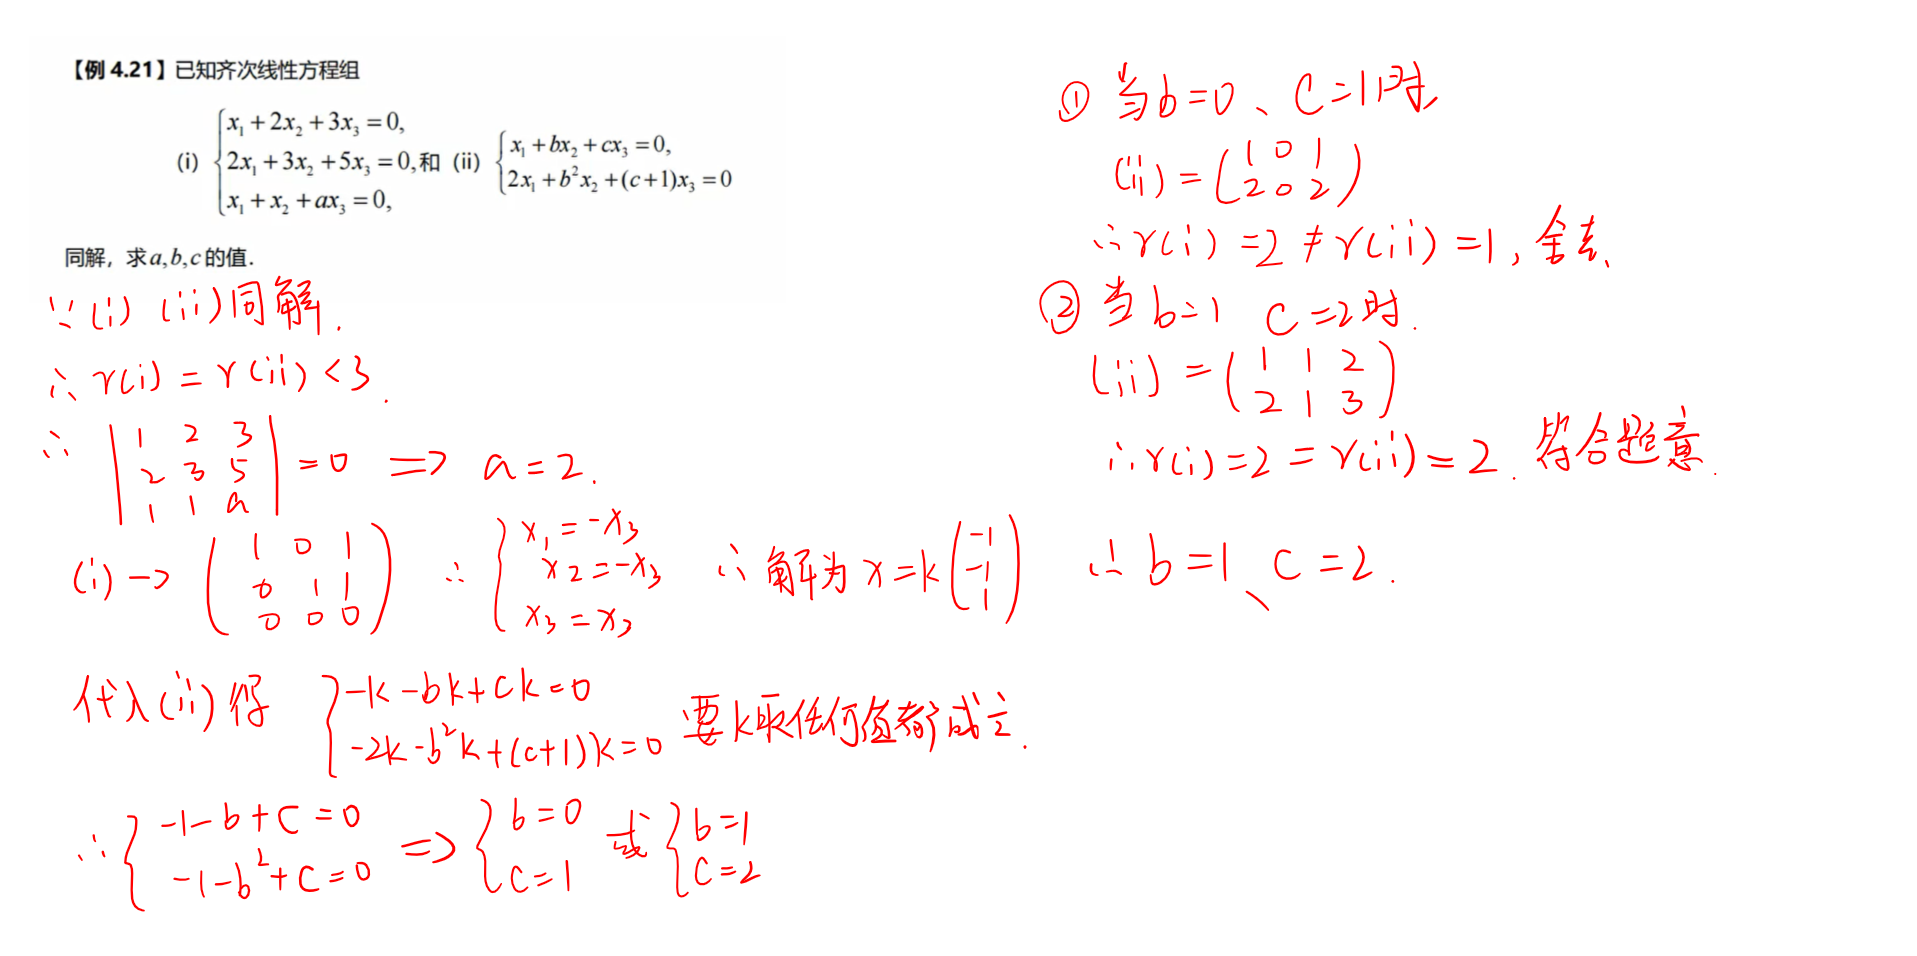 【例 4.21】已知齐次线性方程组
(i) { x₁ + 2x₂ + 3x₃ = 0, 2x₁ + 3x₂ + 5x₃ = 0, x₁ + x₂ + ax₃ = 0, 和 (ii) { x₁ + bx₂ + cx₃ = 0, 2x₁ + b²x₂ + (c+1)x₃ = 0
同解，求a,b,c的值.
∵ (i) (ii)同解.
∴ r(i) = r(ii) < 3.
∴ | 1 2 3 |
| 2 3 5 | = 0 ⇒ a = 2.
| 1 1 a |
(i) → ( 1 0 1
0 1 1
0 0 0 ) ∴ { x₁ = -x₃
x₂ = -x₃
x₃ = x₃ ∴ 解为 x = k ( -1
-1
1 )
代入(ii)得 { -k - bk + ck = 0
-2k - b²k + (c+1)k = 0 要k取任何值都成立.
∴ { -1 - b + c = 0
-1 - b² + c = 0 ⇒ { b = 0
c = 1 或 { b = 1
c = 2
① 当b=0、c=1时
(ii) = ( 1 0 1
2 0 2 )
∴ r(i) = 2 ≠ r(ii) = 1, 舍去、
② 当 b=1 c=2时.
(ii) = ( 1 1 2
2 1 3 )
∴ r(i) = 2 = r(ii) = 2. 符合题意.
∴ b = 1、c = 2.